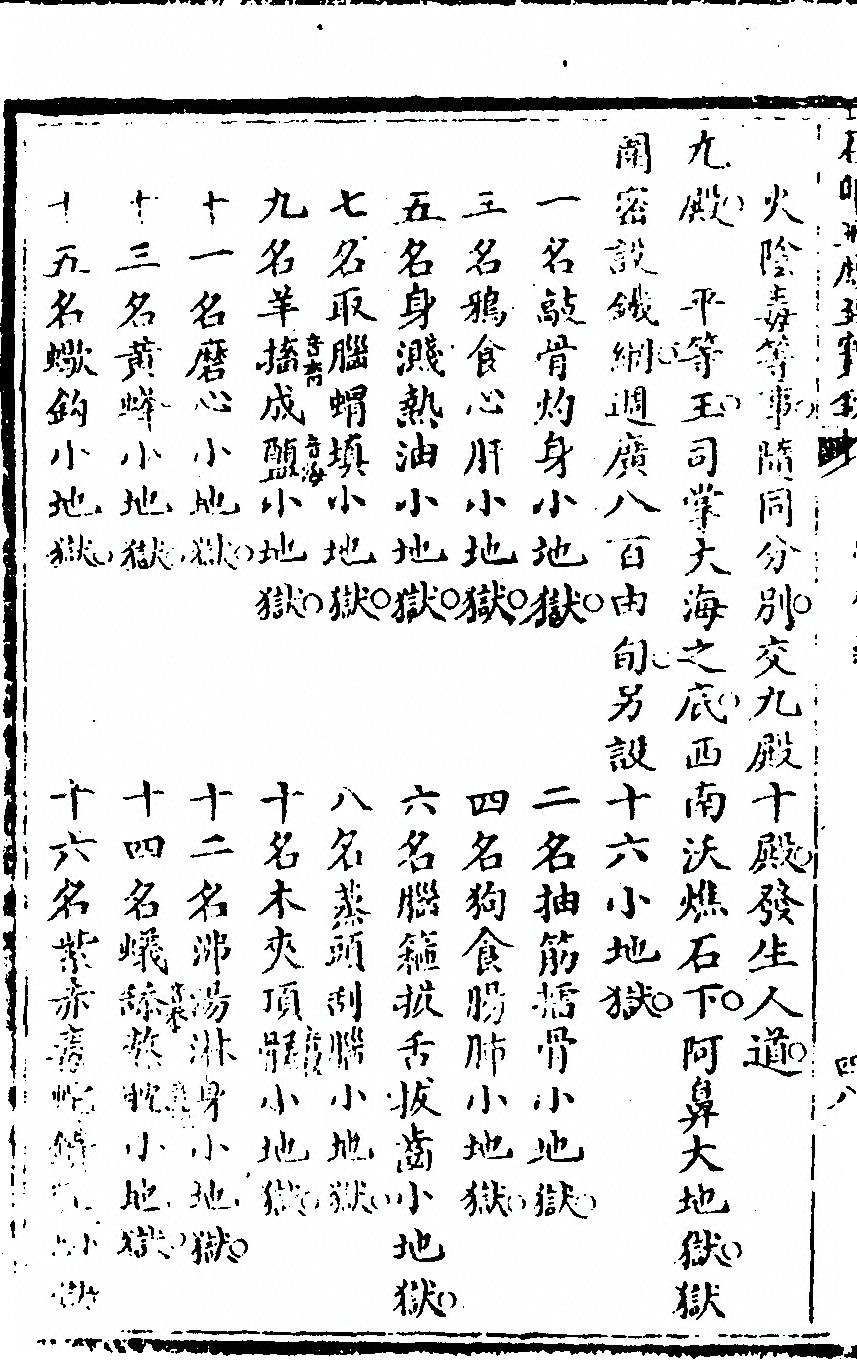 火陰毒等事隨同分別交九殿十殿發生人道
九殿 平等王司掌大海之底西南沃燋石下阿鼻大地獄獄
圍密設鐵網週廣八百由旬另設十六小地獄
一名敲骨灼身小地獄 二名抽筋擂骨小地獄
三名鴉食心肝小地獄 四名狗食腸肺小地獄
五名身濺熱油小地獄 六名腦箍拔舌拔齒小地獄
七名取腦蝟填小地獄 八名蒸頭刮腦小地獄
九名羊搐成鹽小地獄 十名木夾頂小地獄
十一名磨心小地獄 十二名沸湯淋身小地獄
十三名黃蜂小地獄 十四名蟻小地獄
十五名蠍鈎小地獄 十六名紫赤毒蛇小獄
四八